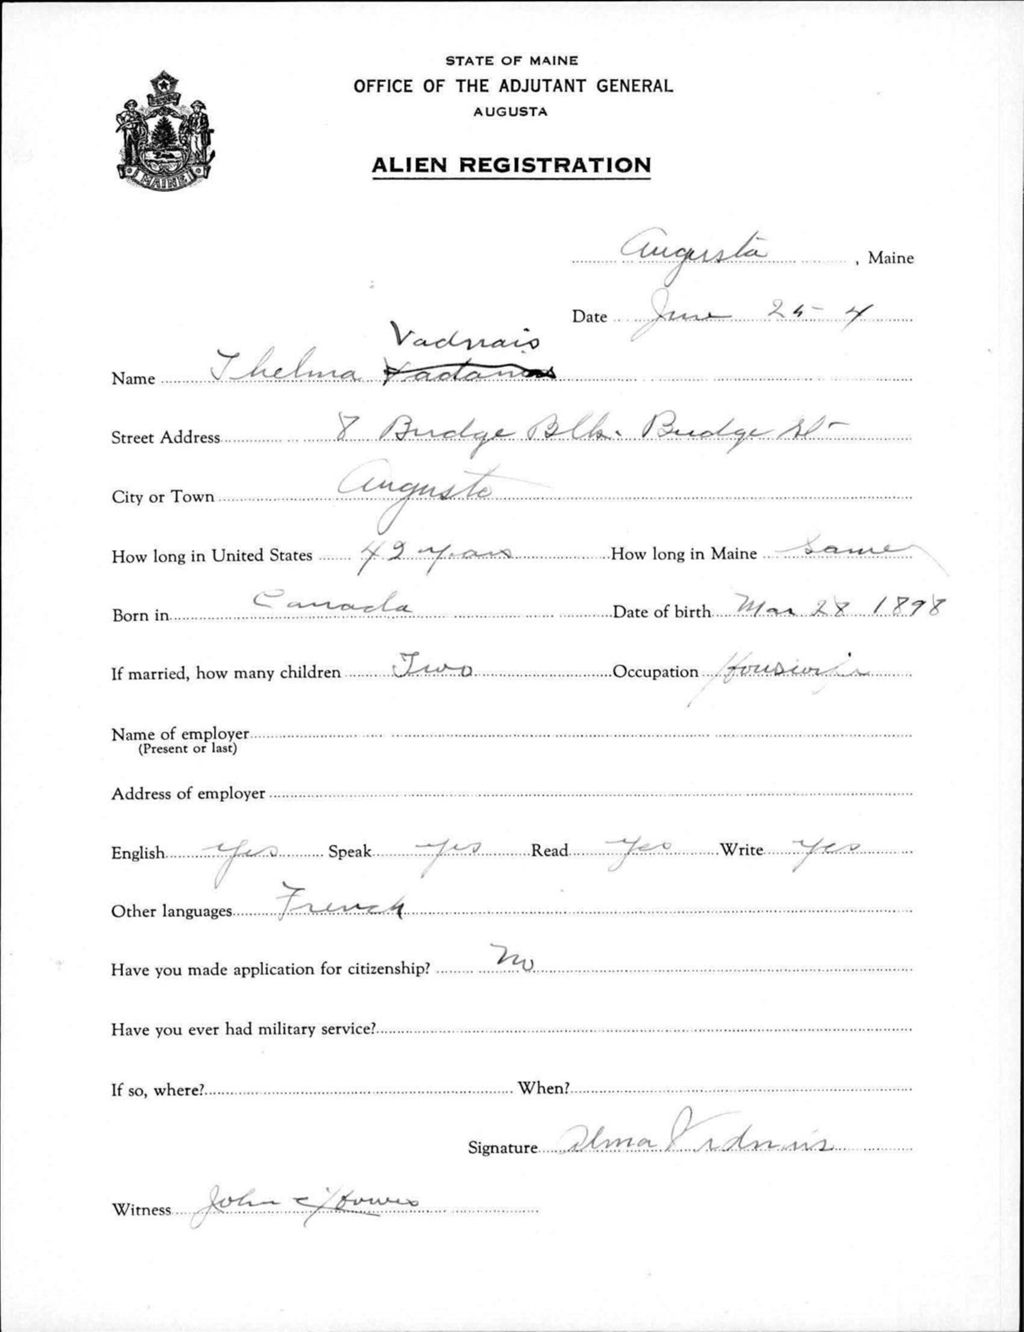 STATE OF MAINE
OFFICE OF THE ADJUTANT GENERAL
AUGUSTA
ALIEN REGISTRATION
MAINE
Augusta, Maine
Date June 25-4
Vadnais
Name Thelma
Street Address 8 Bridge Blk. Bridge St
City or Town Augusta
How long in United States 42 years How long in Maine Same
Born in Canada Date of birth Mar 28 1898
If married, how many children Two Occupation Housewife
Name of employer
(Present or last)
Address of employer
English Yes Speak yes Read Yes Write Yes
Other languages French
Have you made application for citizenship? No
Have you ever had military service?
If so, where? When?
Signature Alma Vadnais
Witness John